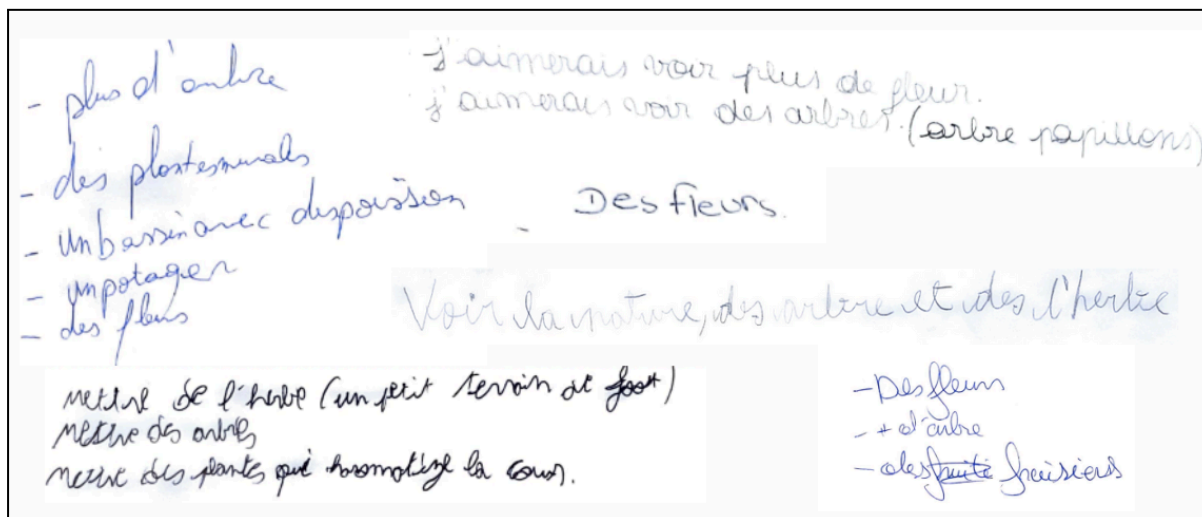 - plus d'arbre
- des plantes murales
- un bassin avec des poissson
- un potager
- des fleurs
J'aimerais voir plus de fleur.
j'aimerais voir des arbres. (arbre papillons)
Des fleurs.
Voir la nature, des arbre et des l'herbe
mettre de l'herbe (un petit terrain de foot)
mettre des arbres
mettre des plantes qui haromatize la cour.
- Des fleurs
- + d'arbre
- des fraisiers